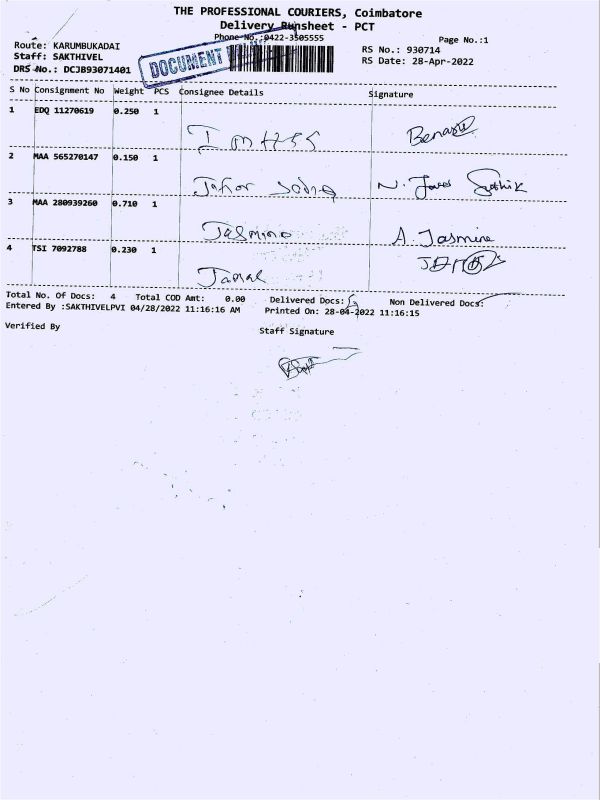 THE PROFESSIONAL COURIERS, Coimbatore
Delivery Runsheet - PCT
Phone No.:0422-3505555
Page No.:1
Route: KARUMBUKADAI
RS No.: 930714
Staff: SAKTHIVEL
RS Date: 28-Apr-2022
DRS No.: DCJB93071401
DOCUMENT
S No Consignment No Weight PCS Consignee Details Signature
1 EDQ 11270619 0.250 1
2 MAA 565270147 0.150 1
3 MAA 280939260 0.710 1 Jasmine A. Jasmine
4 TSI 7092788 0.230 1 Jamal
Total No. Of Docs: 4 Total COD Amt: 0.00 Delivered Docs: Non Delivered Docs:
Entered By :SAKTHIVELPVI 04/28/2022 11:16:16 AM Printed On: 28-04-2022 11:16:15
Verified By Staff Signature